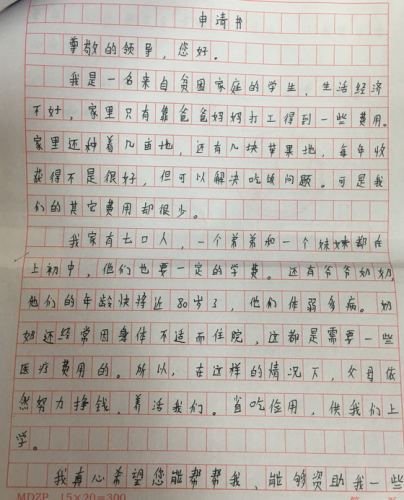 申请书
尊敬的领导，您好。
我是一名来自贫困家庭的学生，生活经济
不好，家里只有靠爸爸妈妈打工得到一些费用。
家里还种着几亩地，还有几块苹果地，每年收
获得不是很好，但可以解决吃饭问题。可是我
们的其它费用都很少。
我家有七口人，一个弟弟和一个妹妹都在
上初中，他们也要一定的学费。还有爷爷奶奶，
他们的年龄快接近80岁了，他们体弱多病。奶
奶还经常因身体不适而住院，这都是需要一些
医疗费用的。所以，在这样的情况下，父母依
然努力挣钱、养活我们。省吃俭用，供我们上
学。
我真心希望您能帮帮我，能够资助我一些
MDZP 15×20=300